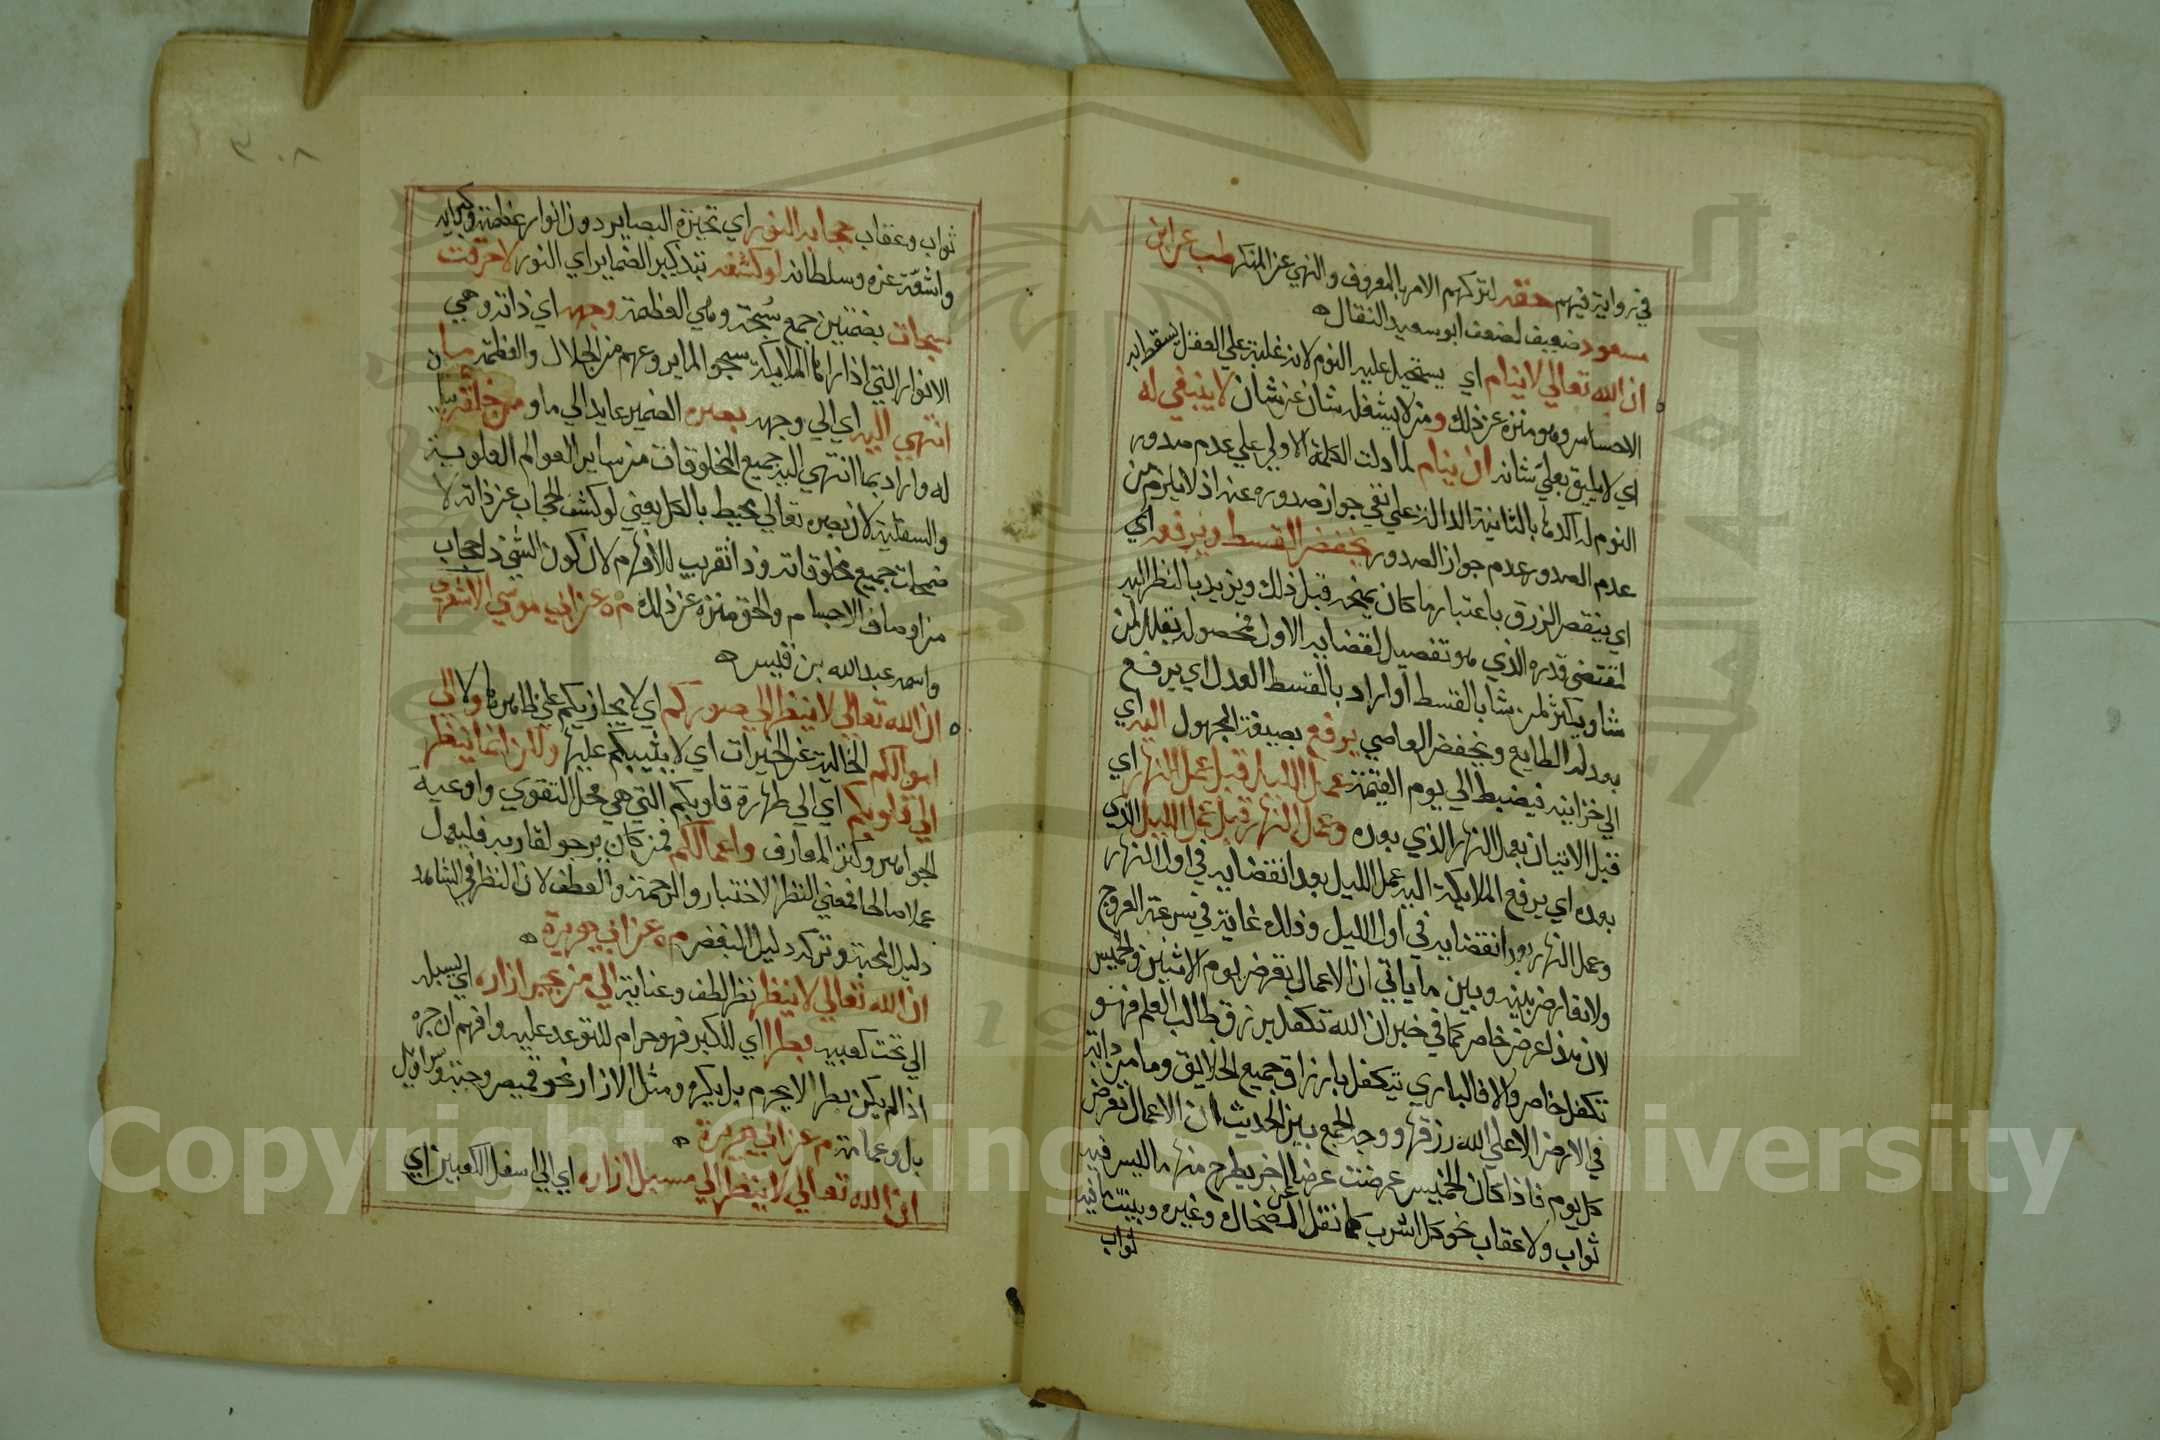 في رواية فيهم حقه لتركهم الامر بالمعروف والنهي عن المنكر طب عن ابن
مسعود ضعيف لضعف ابو سعيد النقال
ان الله تعالي لا ينام اي يستحيل عليه النوم لانه غلبة علي العقل يسقط به
الاحساس وهو منزه عن ذلك ومن لا يشغله شان عن شان لا ينبغي له
اي لا يليق بعلي شانه ان ينام لما دلت الكلمة الاولي علي عدم صدور
النوم له اكدها بالثانية الدالة علي نفي جواز صدوره عنه اذ لا يلزم من
عدم الصدور عدم جواز الصدور يخفض القسط ويرفعه اي
اي ينقص الرزق باعتبار ما كان يمنحه قبل ذلك ويزيد بالنظر اليه
لمقتضي قدره الذي هو تفصيل لقضايه الاول فمحصوله يقلل لمن
شا ويكثر لمن شا بالقسط او اراد بالقسط العدل اي يرفع
بعدله الطايع ويخفض العاصي يرفع بصيغة المجهول اليه اي
الي خزاينه فيضبط الي يوم القيمة عمل الليل قبل عمل النهار اي
قبل الاتيان بعمل النهار الذي بعده وعمل النهار قبل عمل الليل الذي
بعده اي يرفع الملايكة اليه عمل الليل بعد انقضايه في اول النهار
وعمل النهار بعد انقضايه في اول الليل وذلك غاية في سرعة العروج
ولا تعارض بينه وبين ما ياتي ان الاعمال تعرض يوم الاثنين والخميس
لان هذا عرض خاص كما في خبر ان الله تكفل برزق طالب العلم فهو
تكفل خاص والا فالباري تيكفل بارزاق جميع الخلايق وما من دابة
في الارض الا علي الله رزقها ووجه الجمع بين الحديث ان الاعمال تعرض
كل يوم فاذا كان الخميس عرضت عرضا اخر يطرح منها ما ليس فيه
ثواب ولا عقاب نحو كل اشرب كما نقل عن الضحاك وغيره ويثبت ما فيه
ثواب
٣٠٨
ثواب وعقاب حجابه النور اي تحيزه البصاير دون انوار عظمته وكبريايه
واشعة عزه وسلطانه لو كشفه بتذكير الضماير اي النور لاحرقت
سبحات بضمتين جمع سبحة وهي العظمة وجهه اي ذاته وهي
الانوار التي اذا راها الملايكة سبحوا لما يروعهم من الجلال والعظمة ما
انتهي اليه اي الي وجهه بصره الضمير عايد الي ما ومن خلقه بيان
له واراد بما انتهي اليه جميع المخلوقات من ساير العوالم العلوية
والسفلية لان بصره تعالي محيط بالكل يعني لو كشف الحجاب عن ذاته لا
ضمحلت جميع مخلوقاته وذا تقريب للافهام لان كون الشي ذا حجاب
من اوصاف الاجسام والحق منزه عن ذلك م ه عن ابي موسي الاشعري
واسمه عبد الله بن قيس
ان الله تعالي لا ينظر الي صوركم اي لا يجازيكم علي ظاهرها ولا الي
اموالكم الخالية عن الخيرات اي لا يثيبكم عليها ولكن انما ينظر
الي قلوبكم اي الي طهارة قلوبكم التي هي محل التقوي واوعية
الجواهر وكنز المعارف واعمالكم فمن كان يرجو لقا ربه فليعمل
عملا صالحا فمعني النظر الاختيار والرحمة والعطف لان النظر في الشاهد
دليل المحبة وتركه دليل البغض م ه عن ابي هريرة
ان الله تعالي لا ينظر نظر لطف وعناية الي من يجر ازاره اي يسبله
الي تحت كعبيه بطرا اي للكبر فهو حرام للتوعد عليه وافهم ان جره
اذا لم يكن بطرا لا يحرم بل يكره ومثل الازار نحو قميص وجبة وسراويل
بل وعمامة م عن ابي هريرة
ان الله تعالي لا ينظر الي مسبل ازاره اي الي اسفل الكعبين اي
Copyright © King Saud University